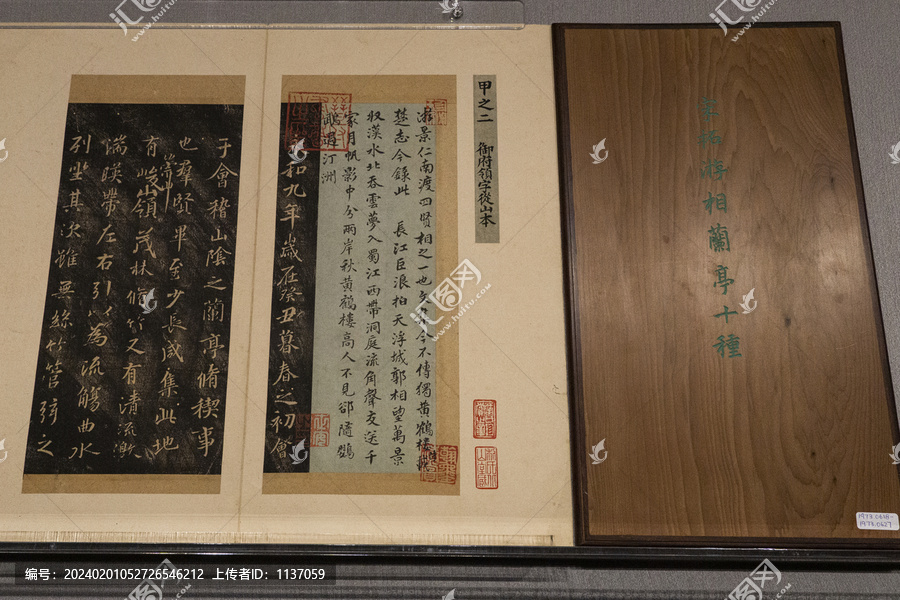 宋拓游相蘭亭十種
甲之二 御府領字從山本
游景仁南渡四賢相之一也文今不傳獨黃鶴樓
楚志今錄此 長江巨浪拍天浮城郭相望萬景
收漢水北吞雲夢入蜀江西帶洞庭流角聲交送千
家月帆影中分兩岸秋黃鶴樓高人不見卻隨鸚
鵡過汀洲
和九年歲在癸丑暮春之初會
于會稽山陰之蘭亭脩稧事
也羣賢畢至少長咸集此地
有崇山峻領茂林脩竹又有清流激
湍暎帶左右引以為流觴曲水
列坐其次雖無絲竹管弦之
1973.0618-
1973.0627
编号：20240201052726546212 上传者ID：1137059
汇图网
www.huitu.com